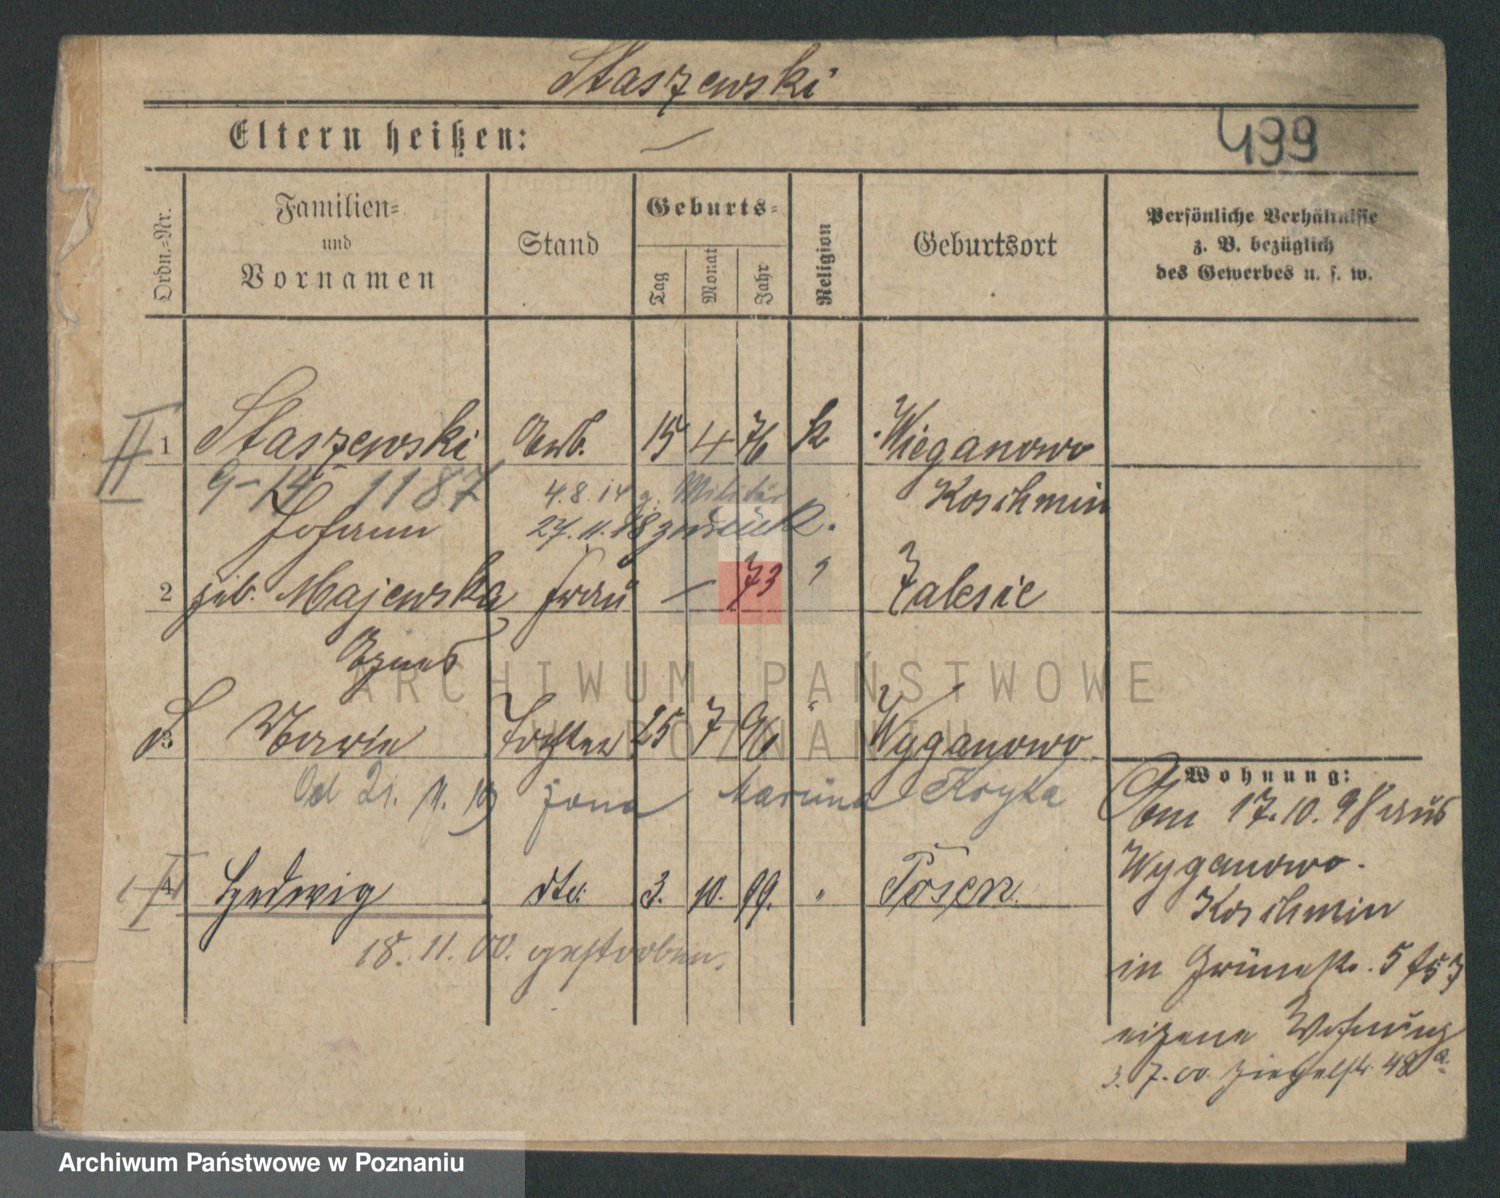 Staszewski
Eltern heißen: —
499
Ordn.-Nr.
Familien-
und
Vornamen
Stand
Geburts-
Tag
Monat
Jahr
Religion
Geburtsort
Persönliche Verhältnisse
z. B. bezüglich
des Gewerbes u. s. w.
II 1 Staszewski Arb. 15 4 76 k Wieganowo
9-14 1187 4.8.14 z. Militär Koschmin
Johann 27.11.18 zurück.
2 geb. Majewska Frau — 73 " Zalesie
Agnes
3 Marie Tochter 25 7 96 " Wyganowo
Od 21. żona Marcina
4 Hedwig dto. 3. 10. 99. " Posen
18.11.00. gestorben.
Wohnung:
Vom 17.10.98 aus
Wyganowo.
Koschmin
in Grünestr. 5
eigene Wohnung
3.7.00. Ziegelstr. 48a.
ARCHIWUM PAŃSTWOWE
W POZNANIU
Archiwum Państwowe w Poznaniu